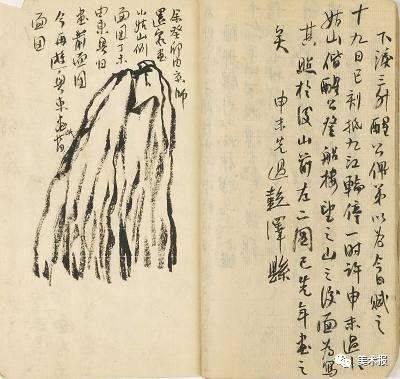 三
醒公
弟以为今日
之
十九日巳刻抵九江輪停一时許申末過小
姑山偕醒公登船樓望之山之後面为寫
其照於後山前左二圖已先年畫之
矣 申末先過彭澤縣
余癸卯由京師
還家畫
小姑山側
面圖丁未
由東粵歸
畫前面圖
今再遊粵東畫背
面圖
美术报